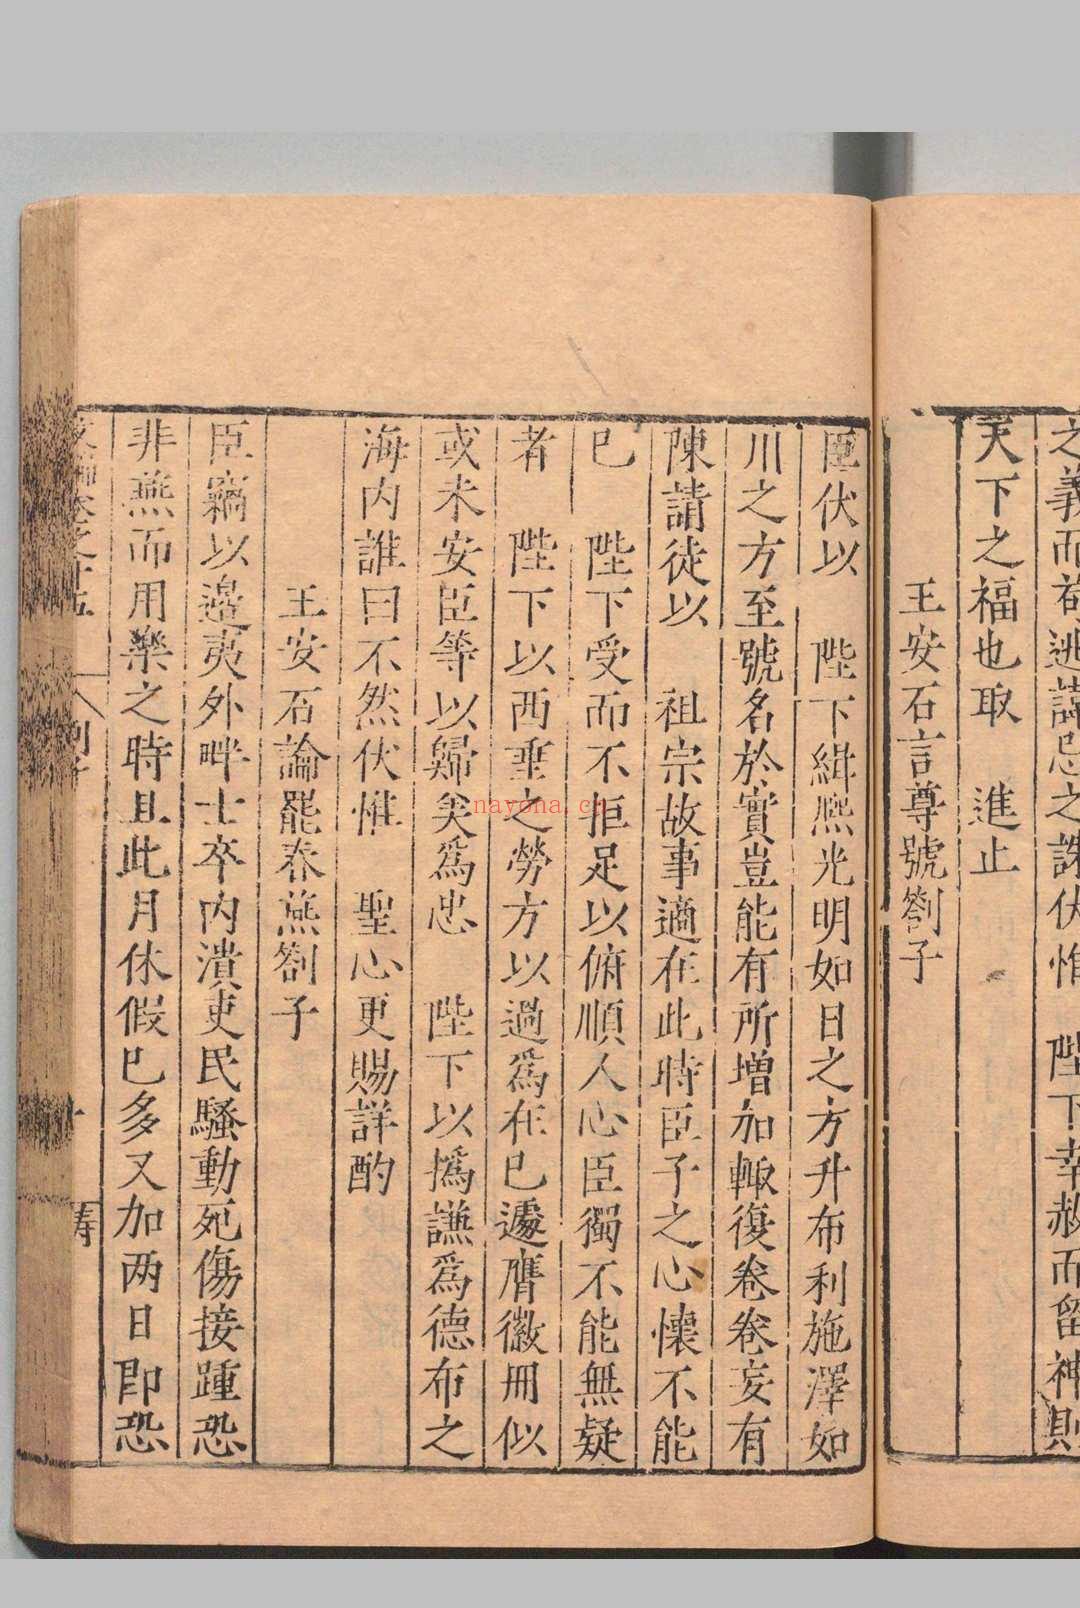 之義而苟逃諱忌之誅伏惟　陛下幸赦而留神則
天下之福也取　進止
王安石言尊號劄子
臣伏以　陛下緝熙光明如日之方升布利施澤如
川之方至號名於實豈能有所增加輙復卷卷妄有
陳請徒以　祖宗故事適在此時臣子之心懷不能
已　陛下受而不拒足以俯順人心臣獨不能無疑
者　陛下以西垂之勞方以過爲在已遽膺徽冊似
或未安臣等以歸美爲忠　陛下以撝謙爲德布之
海內誰曰不然伏惟　聖心更賜詳酌
王安石論罷春燕劄子
臣竊以邊夷外畔士卒內潰吏民騷動死傷接踵恐
非燕而用樂之時且此月休假已多又加两日即恐
卷之十五
nayona.cn